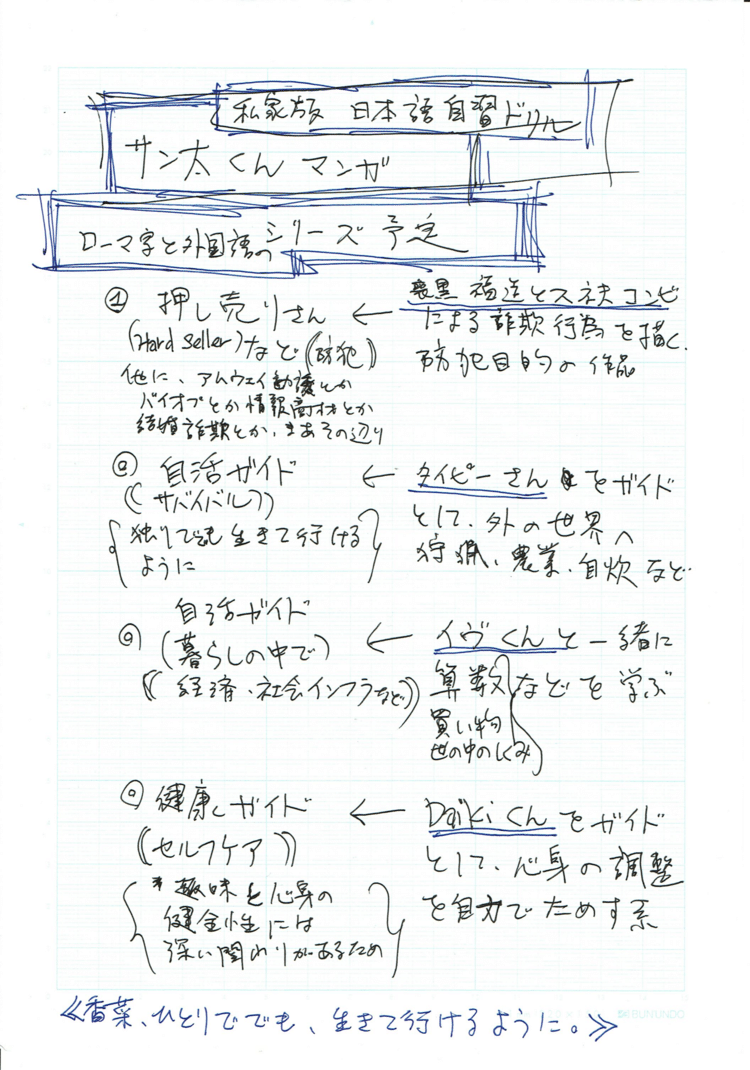 私家版 日本語自習ドリル
サン太くん マンガ
ローマ字と外国語のシリーズ予定
① 押し売りさん ← 喪黒 福造とスネ夫コンビ
(Hard Seller)など((防犯)) による詐欺行為を描く、
防犯目的の作品
他に、アムウェイ勧誘とか
バイオプとか情報商材とか
結婚詐欺とか、まあその辺り
◎ 自活ガイド ← タイピーさん をガイド
((サバイバル)) として、外の世界へ
狩猟、農業、自炊など
{独りででも生きて行ける
ように}
自活ガイド
◎ (暮らしの中で) ← イヴくんと一緒に
((経済・社会インフラなど)) 算数 などを学ぶ
買い物
世の中のしくみ
◎ 健康ガイド ← Daikiくんをガイド
((セルフケア)) として、心身の調整
を自力でためす系
{*趣味と心身の
健全性には
深い関わりがあるため}
≪香菜、ひとりででも、生きて行けるように。≫